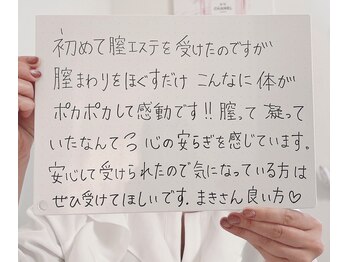 初めて膣エステを受けたのですが
膣まわりをほぐすだけ こんなに体が
ポカポカして感動です!! 膣って 凝って
いたなんて 心の安らぎを感じています。
安心して受けられたので気になっている方は
ぜひ受けてほしいです。まきさん良い方♡